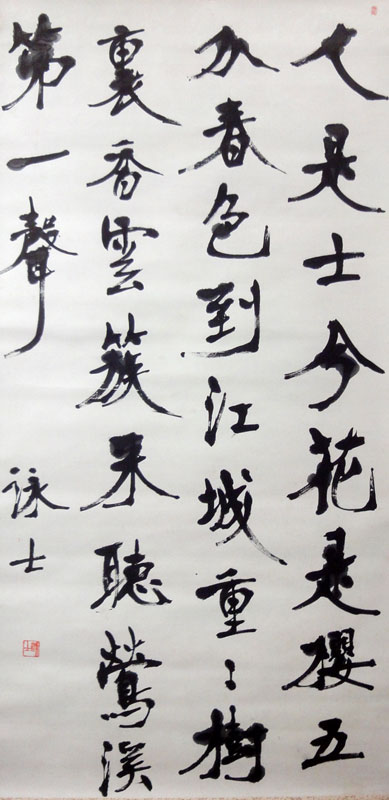 人是士兮花是櫻五
分春色到江城重〻樹
裏香雲簇来聽鶯溪
第一聲
詠士